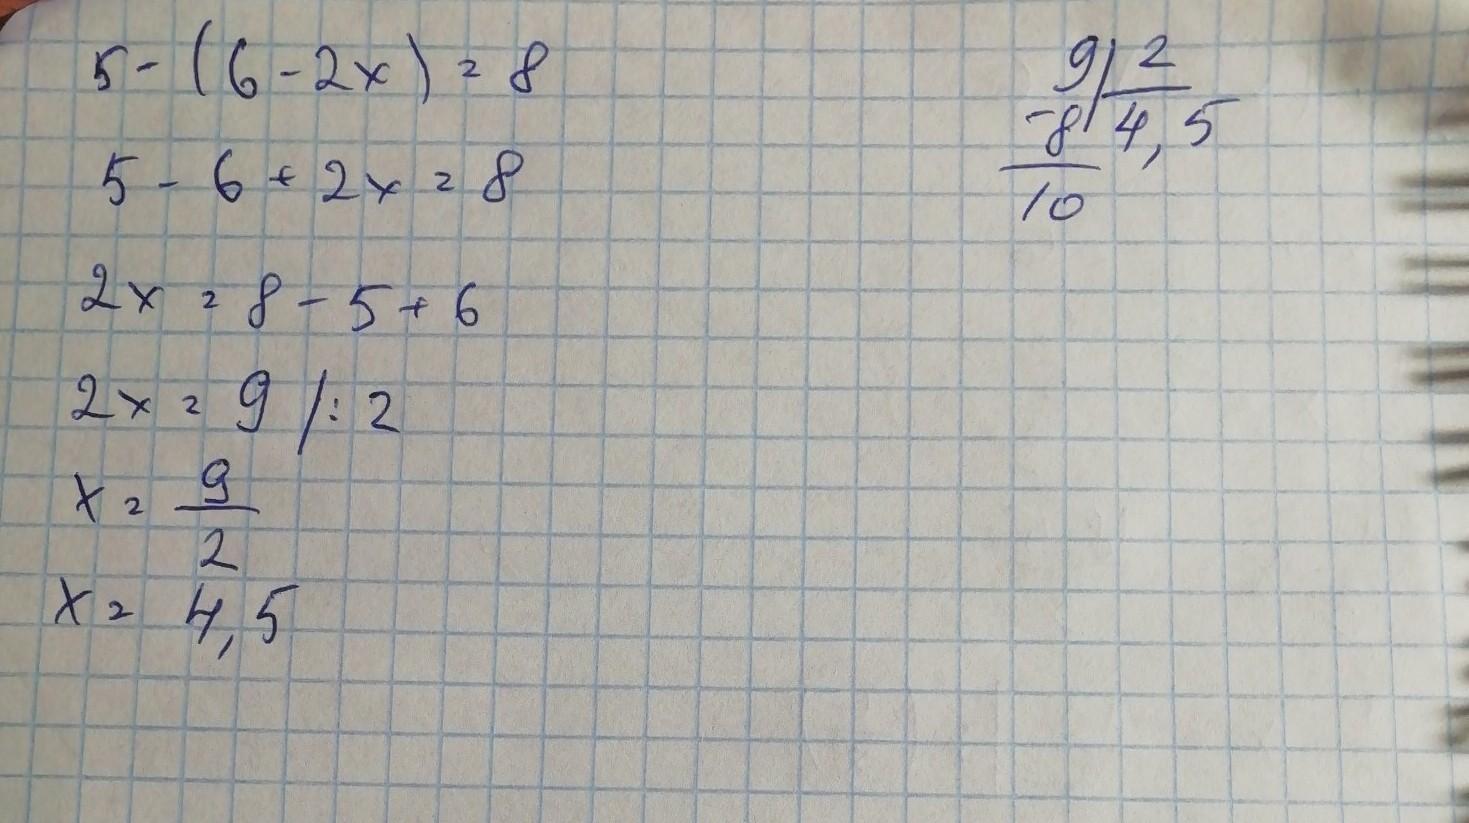 5 - (6 - 2x) = 8
5 - 6 + 2x = 8
2x = 8 - 5 + 6
2x = 9 /: 2
x = 9/2
x = 4,5
9 | 2
-8 | 4,5
10